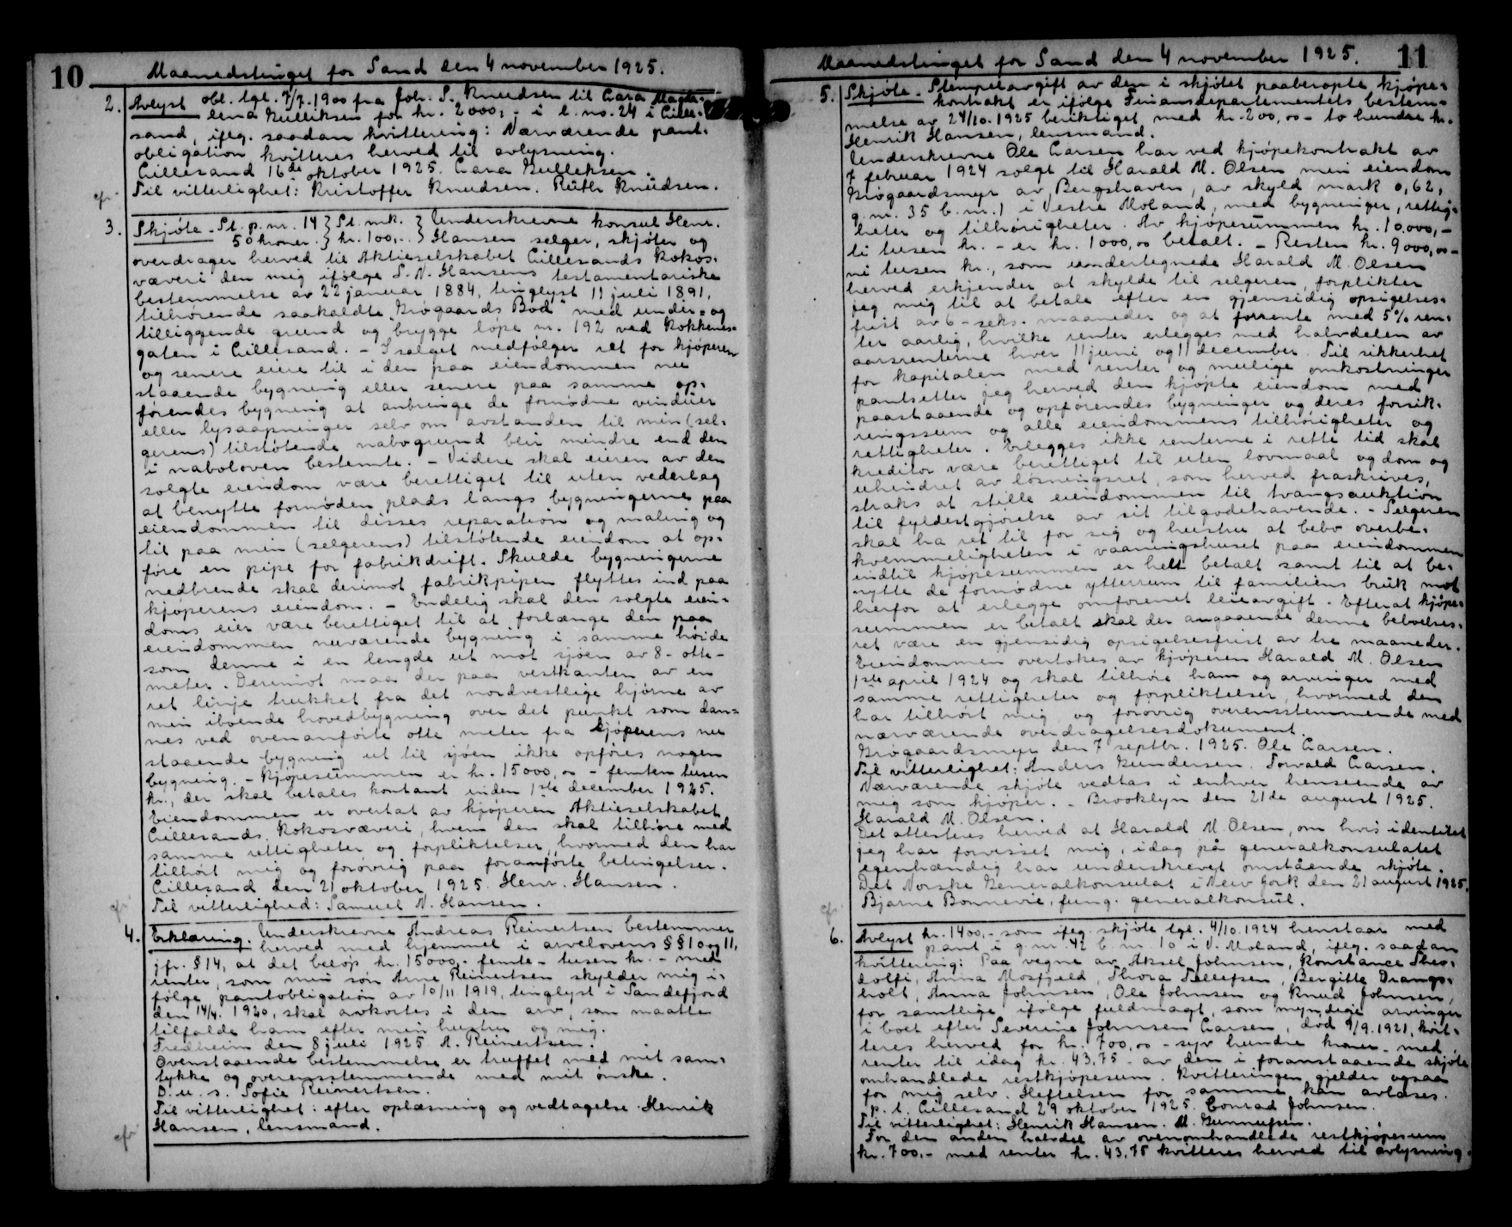 10
Maanedstinget for Sand den 4 november 1925.
2. Avlyst obl. tgl. 7/7.1900 fra Joh. S. Knudsen til Cara Magda-
lena Gulliksen for kr. 2000,- i l. no. 24 i Lille-
sand, ifølg. saadan kvittering: Nærværende pant-
obligation kvitteres herved til avlysning.
Lillesand 16de oktober 1925. Cara Gulliksen.
Til vitterlighet: Kristoffer Knudsen. Ruth Knudsen.
3. Skjøte. St. p. nr. 14 } St. mk. } Underskrevne konsul Henr.
50 kroner. } kr. 100,-. } Hansen selger, skjøter og
overdrager herved til Aktieselskabet Lillesands Kokos-
væveri den mig ifølge S. N. Hansens testamentariske
bestemmelse av 22 januar 1884, tinglyst 11 juli 1891,
tilhørende saakaldte "Grøgaards Bod" med under- og
tilliggende grund og brygge løpe nr. 192 ved Kokkenes-
gaten i Lillesand. - I salget medfølger ret for kjøperen
og senere eiere til i den paa eiendommen nu
staaende bygning eller senere paa samme op-
førendes bygning at anbringe de fornødne vinduer
eller lysaapninger selv om avstanden til min (sel-
gerens) tilstøtende nabogrund blir mindre end den
i naboloven bestemte. - Videre skal eieren av den
solgte eiendom være berettiget til uten vederlag
at benytte fornøden plads langs bygningerne paa
eiendommen til disses reparation og maling og
til paa min (selgerens) tilstøtende eiendom at op-
føre en pipe for fabrikdrift. Skulde bygningerne
nedbrænde skal derimot fabrikpipen flyttes ind paa
kjøperens eiendom. - Endelig skal den solgte eien-
doms eier være berettiget til at forlænge den paa
eiendommen nuværende bygning i samme høide
som denne i en længde ut mot sjøen av 8 - otte -
meter. Derimot maa der paa vestkanten av en
ret linje trukket fra det nordvestlige hjørne av
min iboende hovedbygning over det punkt som dan-
nes ved ovenanførte otte meter fra kjøperens nu
staaende bygning ut til sjøen ikke opføres nogen
bygning. - Kjøpesummen er kr. 15000,00 - femten tusen
kr., der skal betales kontant inden 1ste december 1925.
Eiendommen er overtat av kjøperen Aktieselskabet
Lillesands Kokosvæveri, hvem den skal tilhøre med
samme rettigheter og forpliktelser, hvormed den har
tilhørt mig og forøvrig paa foranførte betingelser.
Lillesand den 21 oktober 1925. Henr. Hansen.
Til vitterlighed: Samuel N. Hansen.
4. Erklæring. Underskrevne Andreas Reinertsen bestemmer
herved med hjemmel i arvelovens §§ 10 og 11,
jfr. § 14, at det beløp kr. 15000,- femten - tusen kr. - med
renter, som min søn Arne Reinertsen skylder mig i-
følge pantobligation av 10/11 1919, tinglyst i Sandefjord
den 14/4. 1920, skal avkortes i den arv, som maatte
tilfalde ham efter min hustru og mig.
Fredheim den 8 juli 1925 A. Reinertsen.
Ovenstaaende bestemmelse er truffet med mit sam-
tykke og overensstemmende med mit ønske.
D. u. s. Sofie Reinertsen.
Til vitterlighet: efter oplæsning og vedtagelse Henrik
Hansen, lensmand.
11
Maanedstinget for Sand den 4 november 1925.
5. Skjøte. Stempelavgift av den i skjøtet paaberopte kjøpe-
kontrakt er ifølge Finansdepartementets bestem-
melse av 24/10. 1925 beriktiget med kr. 200,00 - to hundre kr.
Henrik Hansen, lensmand.
Underskrevne Ole Larsen har ved kjøpekontrakt av
7 februar 1924 solgt til Harald M. Olsen min eiendom
Grøgaardsmyr av Bergshaven, av skyld mark 0,62,
g. nr. 35 b. nr. 1 i Vestre Moland, med bygninger, rettig-
heter og tilhørigheter. Av kjøpesummen kr. 10,000,-
ti tusen kr. - er kr. 1000,00 betalt. - Resten kr. 9000,00 -
ni tusen kr., som undertegnede Harald M. Olsen
herved erkjender at skylde til selgeren, forplikter
jeg mig til at betale efter en gjensidig opsigelses-
frist av 6 - seks - maaneder og at forrente med 5% ren-
ter aarlig, hvilke renter erlægges med halvdelen av
aarsrenterne hver 11 juni og 11 december. Til sikkerhet
for kapitalen med renter og mulige omkostninger
pantsetter jeg herved den kjøpte eiendom med
paastaaende og opførendes bygninger og deres forsik-
ringssum og alle eiendommens tilhørigheter og
rettigheter. Erlægges ikke renterne i rette tid skal
kreditor være berettiget til uten lovmaal og dom og
uhindret av løsningsret, som herved fraskrives,
straks at stille eiendommen til tvangsauktion
til fyldestgjørelse av sit tilgodehavende. - Selgeren
skal ha ret til for sig og hustru at bebo overbe-
kvemmeligheten i vaaningshuset paa eiendommen
indtil kjøpesummen er helt betalt samt til at be-
nytte de fornødne ytterrum til familiens bruk mot
herfor at erlægge omforenet leieavgift. Efterat kjøpe-
summen er betalt skal der angaaende denne beboelses-
ret være en gjensidig opsigelsesfrist av tre maaneder.
Eiendommen overtokes av kjøperen Harald M. Olsen
1ste april 1924 og skal tilhøre ham og arvinger med
samme rettigheter og forpliktelser, hvormed den
har tilhørt mig og forøvrig overensstemmende med
nærværende overdragelsesdokument.
Grøgaardsmyr den 7 septbr. 1925. Ole Larsen.
Til vitterlighet: Anders Gundersen. Torvald Larsen.
Nærværende skjøte vedtas i enhver henseende av
mig som kjøper. - Brooklyn den 21de august 1925.
Harald M. Olsen.
Det attesteres herved at Harald M. Olsen, om hvis identitet
jeg har forvisset mig, idag på generalkonsulatet
egenhændig har underskrevet omstående skjøte.
Det Norske Generalkonsulat i New York den 21 august 1925.
Bjarne Bonnevie, fung. generalkonsul.
6. Avlyst kr. 1400,- som ifølg. skjøte tgl. 4/10. 1924 henstaar med
pant i g. nr. 42 b. nr. 10 i V. Moland, ifølg. saadan
kvittering: Paa vegne av Aksel Johnsen, Konstance
Anna Mosfjeld, Thora Tellefsen, Bergitte Drangs-
holt, Anna Johnsen, Ole Johnsen og Knud Johnsen,
for samtlige ifølge fuldmagt, som myndige arvinger
i boet efter Severine Johnsen Larsen, død 9/9. 1921, kvit-
teres herved for kr. 700,00 - syv hundre kroner - med
renter til idag kr. 43.75 av den i foranstaaende skjøte
omhandlede restkjøpesum. Kvitteringen gjelder ogsaa
for mig selv. Heftelsen for samme kan avlæses.
p. t. Lillesand 29 oktober 1925. Conrad Johnsen.
Til vitterlighet: Henrik Hansen. M. Gunnufsen.
For den anden halvdel av ovenomhandlede restkjøpesum
kr. 700,- med renter kr. 43,75 kvitteres herved til avlysning.